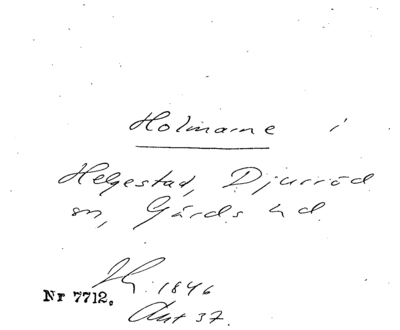 Holmarne i
Helgestad, Djurröd
sn, Gärds hd.
1846
Nr 7712.
Akt 37.